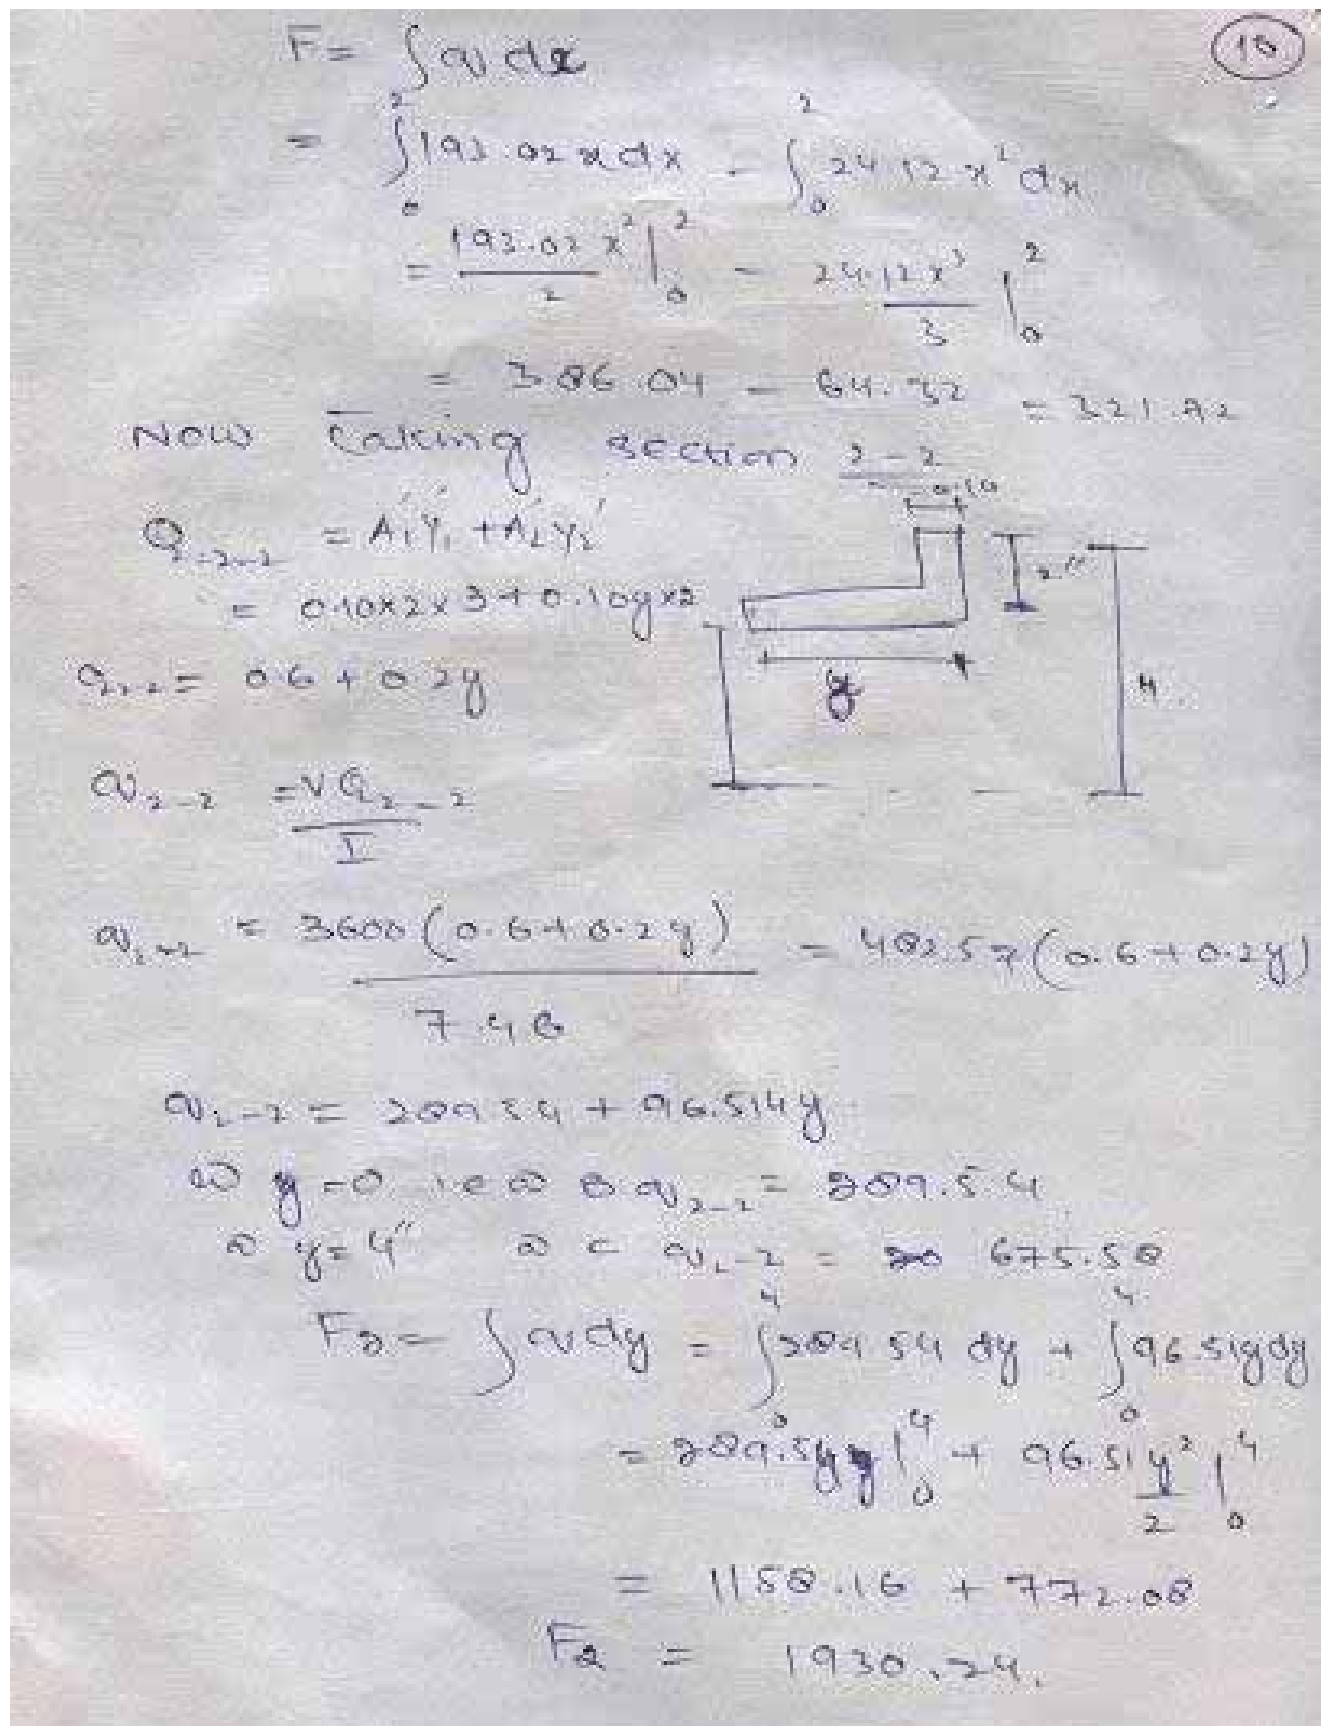 10
F = ∫ q dx
= ∫₀² 193.02 x dx - ∫₀² 24.12 x² dx
= 193.02 x²/2 |₀² - 24.12 x³/3 |₀²
= 386.04 - 64.32 = 321.72
Now Taking section 2-2
0.10
Q₂₋₂ = A₁'y₁' + A₂'y₂'
2"
= 0.10×2×3 + 0.10y×2
Q₂₋₂ = 0.6 + 0.2y
y
4
q₂₋₂ = VQ₂₋₂/I
q₂₋₂ = 3600(0.6+0.2y)/7.46 = 482.57(0.6+0.2y)
q₂₋₂ = 289.54 + 96.514y
@ y=0 i.e @ B q₂₋₂ = 289.54
@ y=4" @ C q₂₋₂ = 675.58
F₂ = ∫ q dy = ∫₀⁴ 289.54 dy + ∫₀⁴ 96.51y dy
= 289.54y |₀⁴ + 96.51 y²/2 |₀⁴
= 1158.16 + 772.08
F₂ = 1930.24.